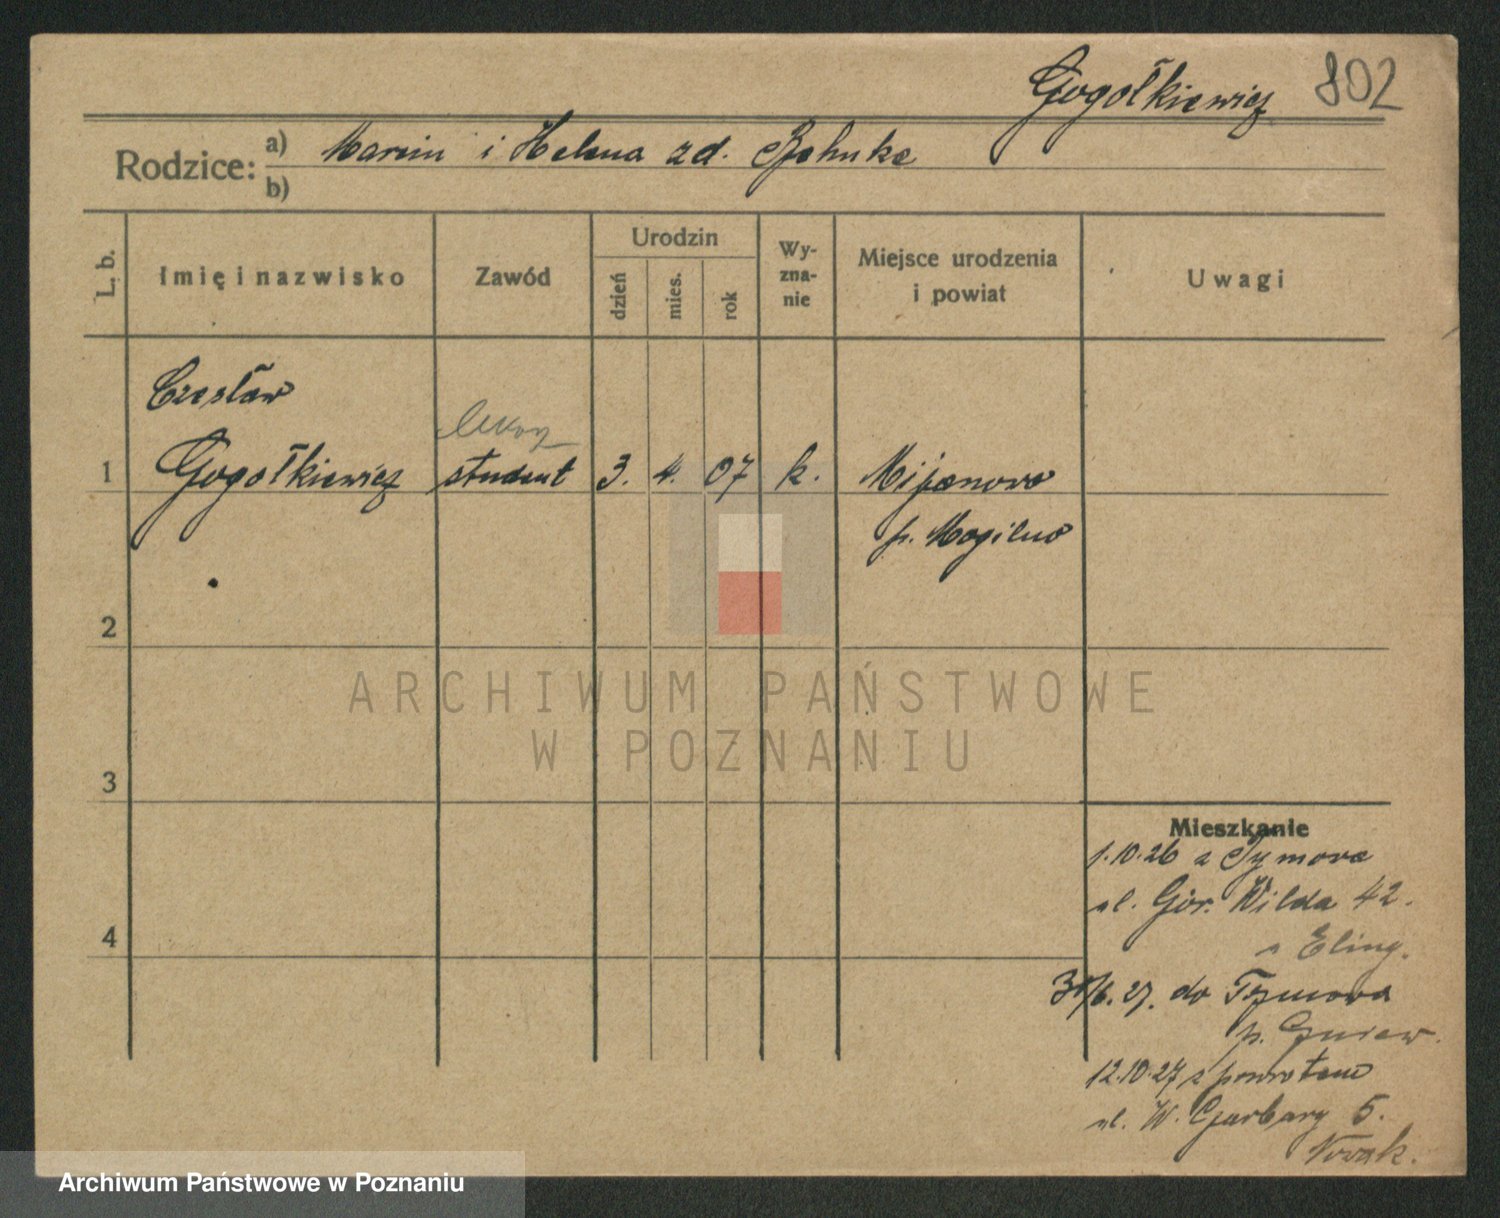 Gogołkiewicz 802
Rodzice: a) Marcin i Helena zd. Behnke
b)
L. b.
Imię i nazwisko
Zawód
Urodzin
dzień
mies.
rok
Wy-
zna-
nie
Miejsce urodzenia
i powiat
Uwagi
Czesław
1 Gogołkiewicz student 3. 4. 07 k. Mijanowo
p. Mogilno
2
ARCHIWUM PAŃSTWOWE
W POZNANIU
3
Mieszkanie
1.10.26 z Tymova
ul. Gór. Wilda 42.
4
u Eling.
30/6.27. do Tymova
p. Gniew.
12.10.27 z powrotem
ul. W. Garbary 5.
Nowak.
Archiwum Państwowe w Poznaniu